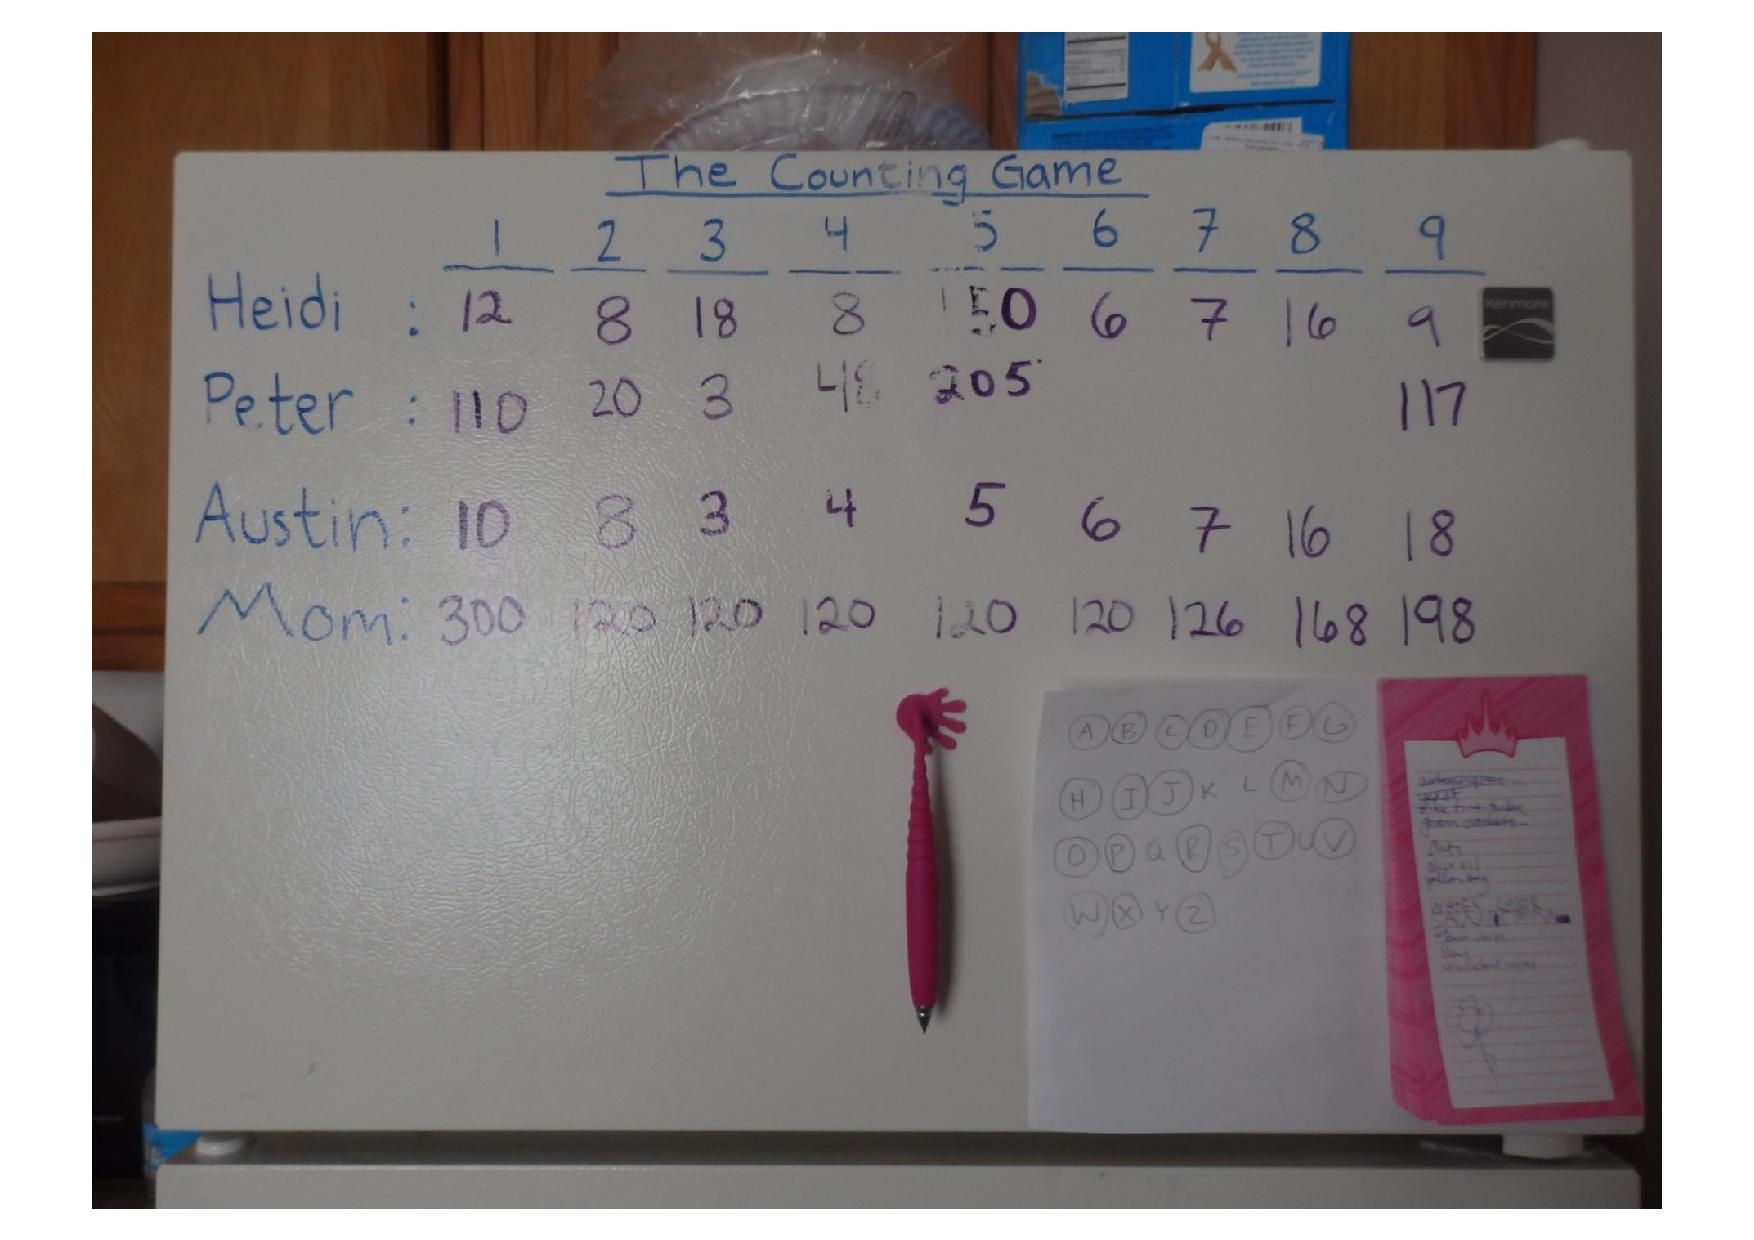 The Counting Game
1 2 3 4 5 6 7 8 9
Heidi : 12 8 18 8 150 6 7 16 9
Kenmore
Peter : 110 20 3 48 205 117
Austin: 10 8 3 4 5 6 7 16 18
Mom: 300 120 120 120 120 120 126 168 198
A B C D E F G
H I J K L M N
O P Q R S T U V
W X Y Z
olive oil